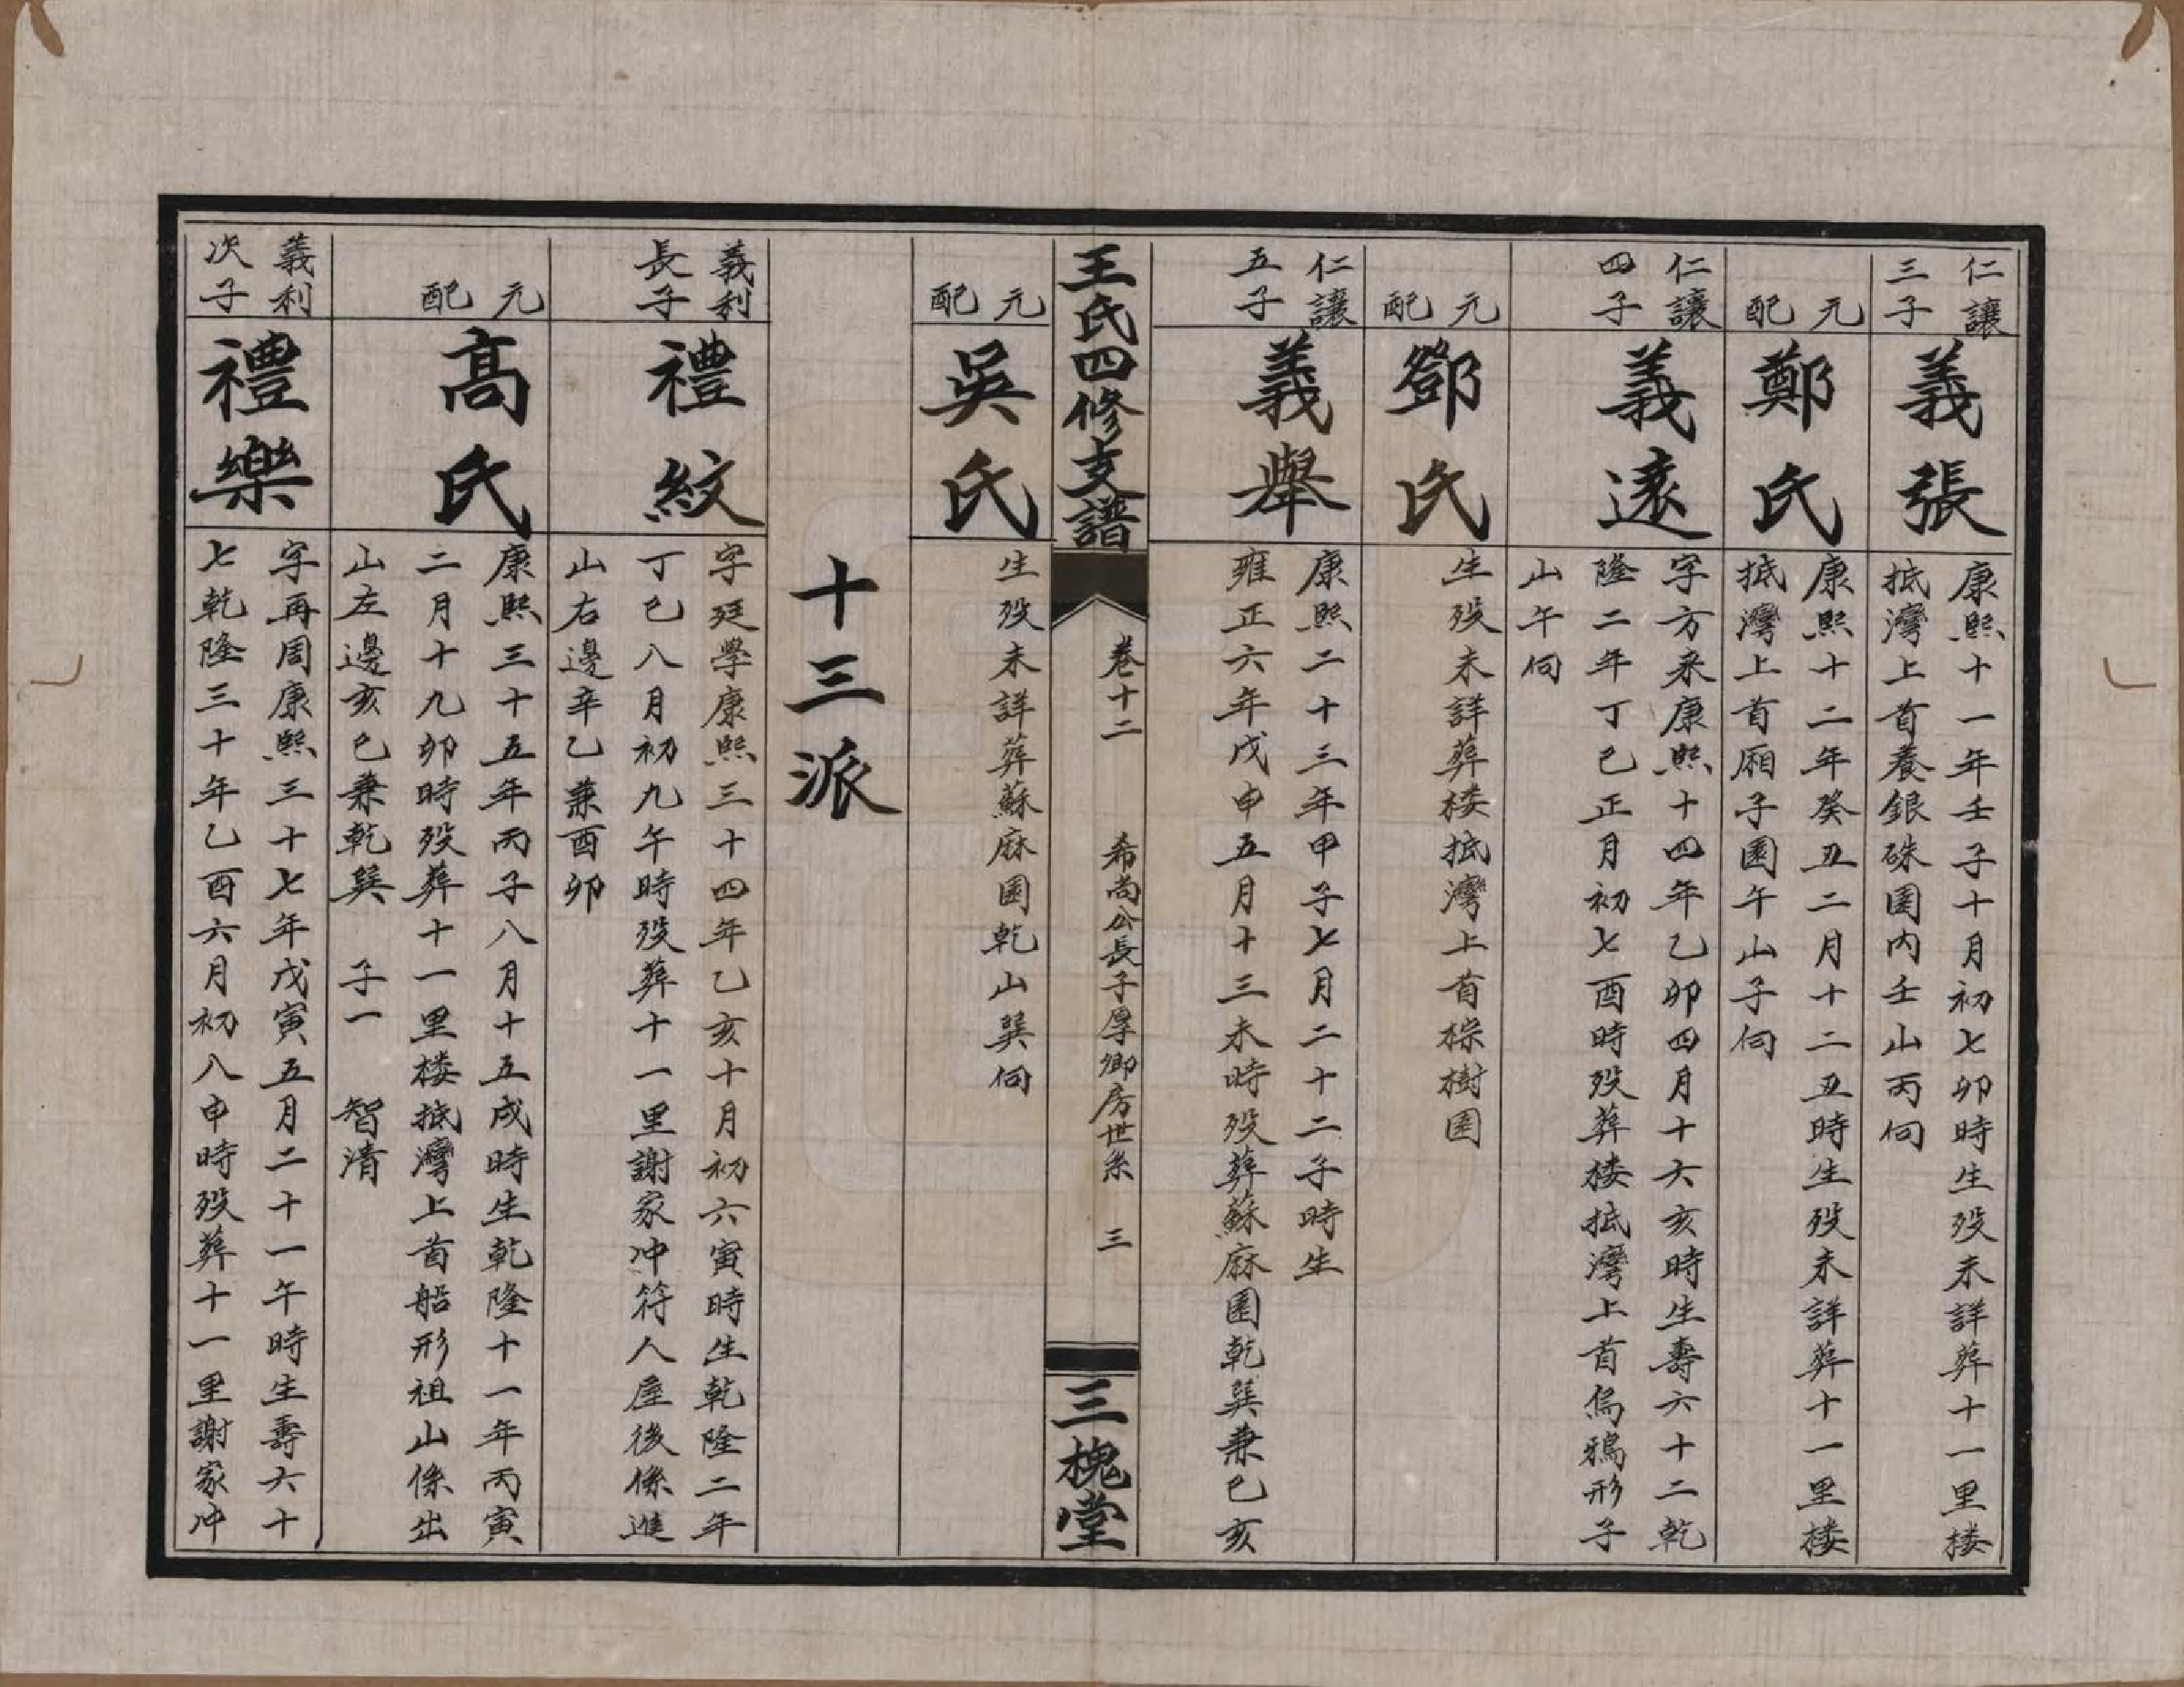 仁讓
三子
義張
康熙十一年壬子十月初七卯時生殁未詳葬十一里楼
抵灣上首養銀硃園内壬山丙向
元配
鄭氏
康熙十二年癸丑二月十二丑時生殁未詳葬十一里楼
抵灣上首厢子園午山子向
仁讓
四子
義遠
字方来康熙十四年乙卯四月十六亥時生壽六十二乾
隆二年丁巳正月初七酉時殁葬楼抵灣上首烏鴉形子
山午向
元配
鄧氏
生殁未詳葬楼抵灣上首棕樹園
仁讓
五子
義舉
康熙二十三年甲子七月二十二子時生
雍正六年戊申五月十三未時殁葬蘇麻園乾巽兼巳亥
王氏四修支譜
卷十二
希尚公長子厚卿房世系
三
三槐堂
元配
吳氏
生殁未詳葬蘇麻園乾山巽向
十三派
義利
長子
禮紋
字廷學康熙三十四年乙亥十月初六寅時生乾隆二年
丁巳八月初九午時殁葬十一里謝家冲符人屋後係進
山右邊辛乙兼酉卯
元配
高氏
康熙三十五年丙子八月十五戌時生乾隆十一年丙寅
二月十九卯時殁葬十一里楼抵灣上首船形祖山係出
山左邊亥巳兼乾巽 子一 智清
義利
次子
禮樂
字再周康熙三十七年戊寅五月二十一午時生壽六十
七乾隆三十年乙酉六月初八申時殁葬十一里謝家冲